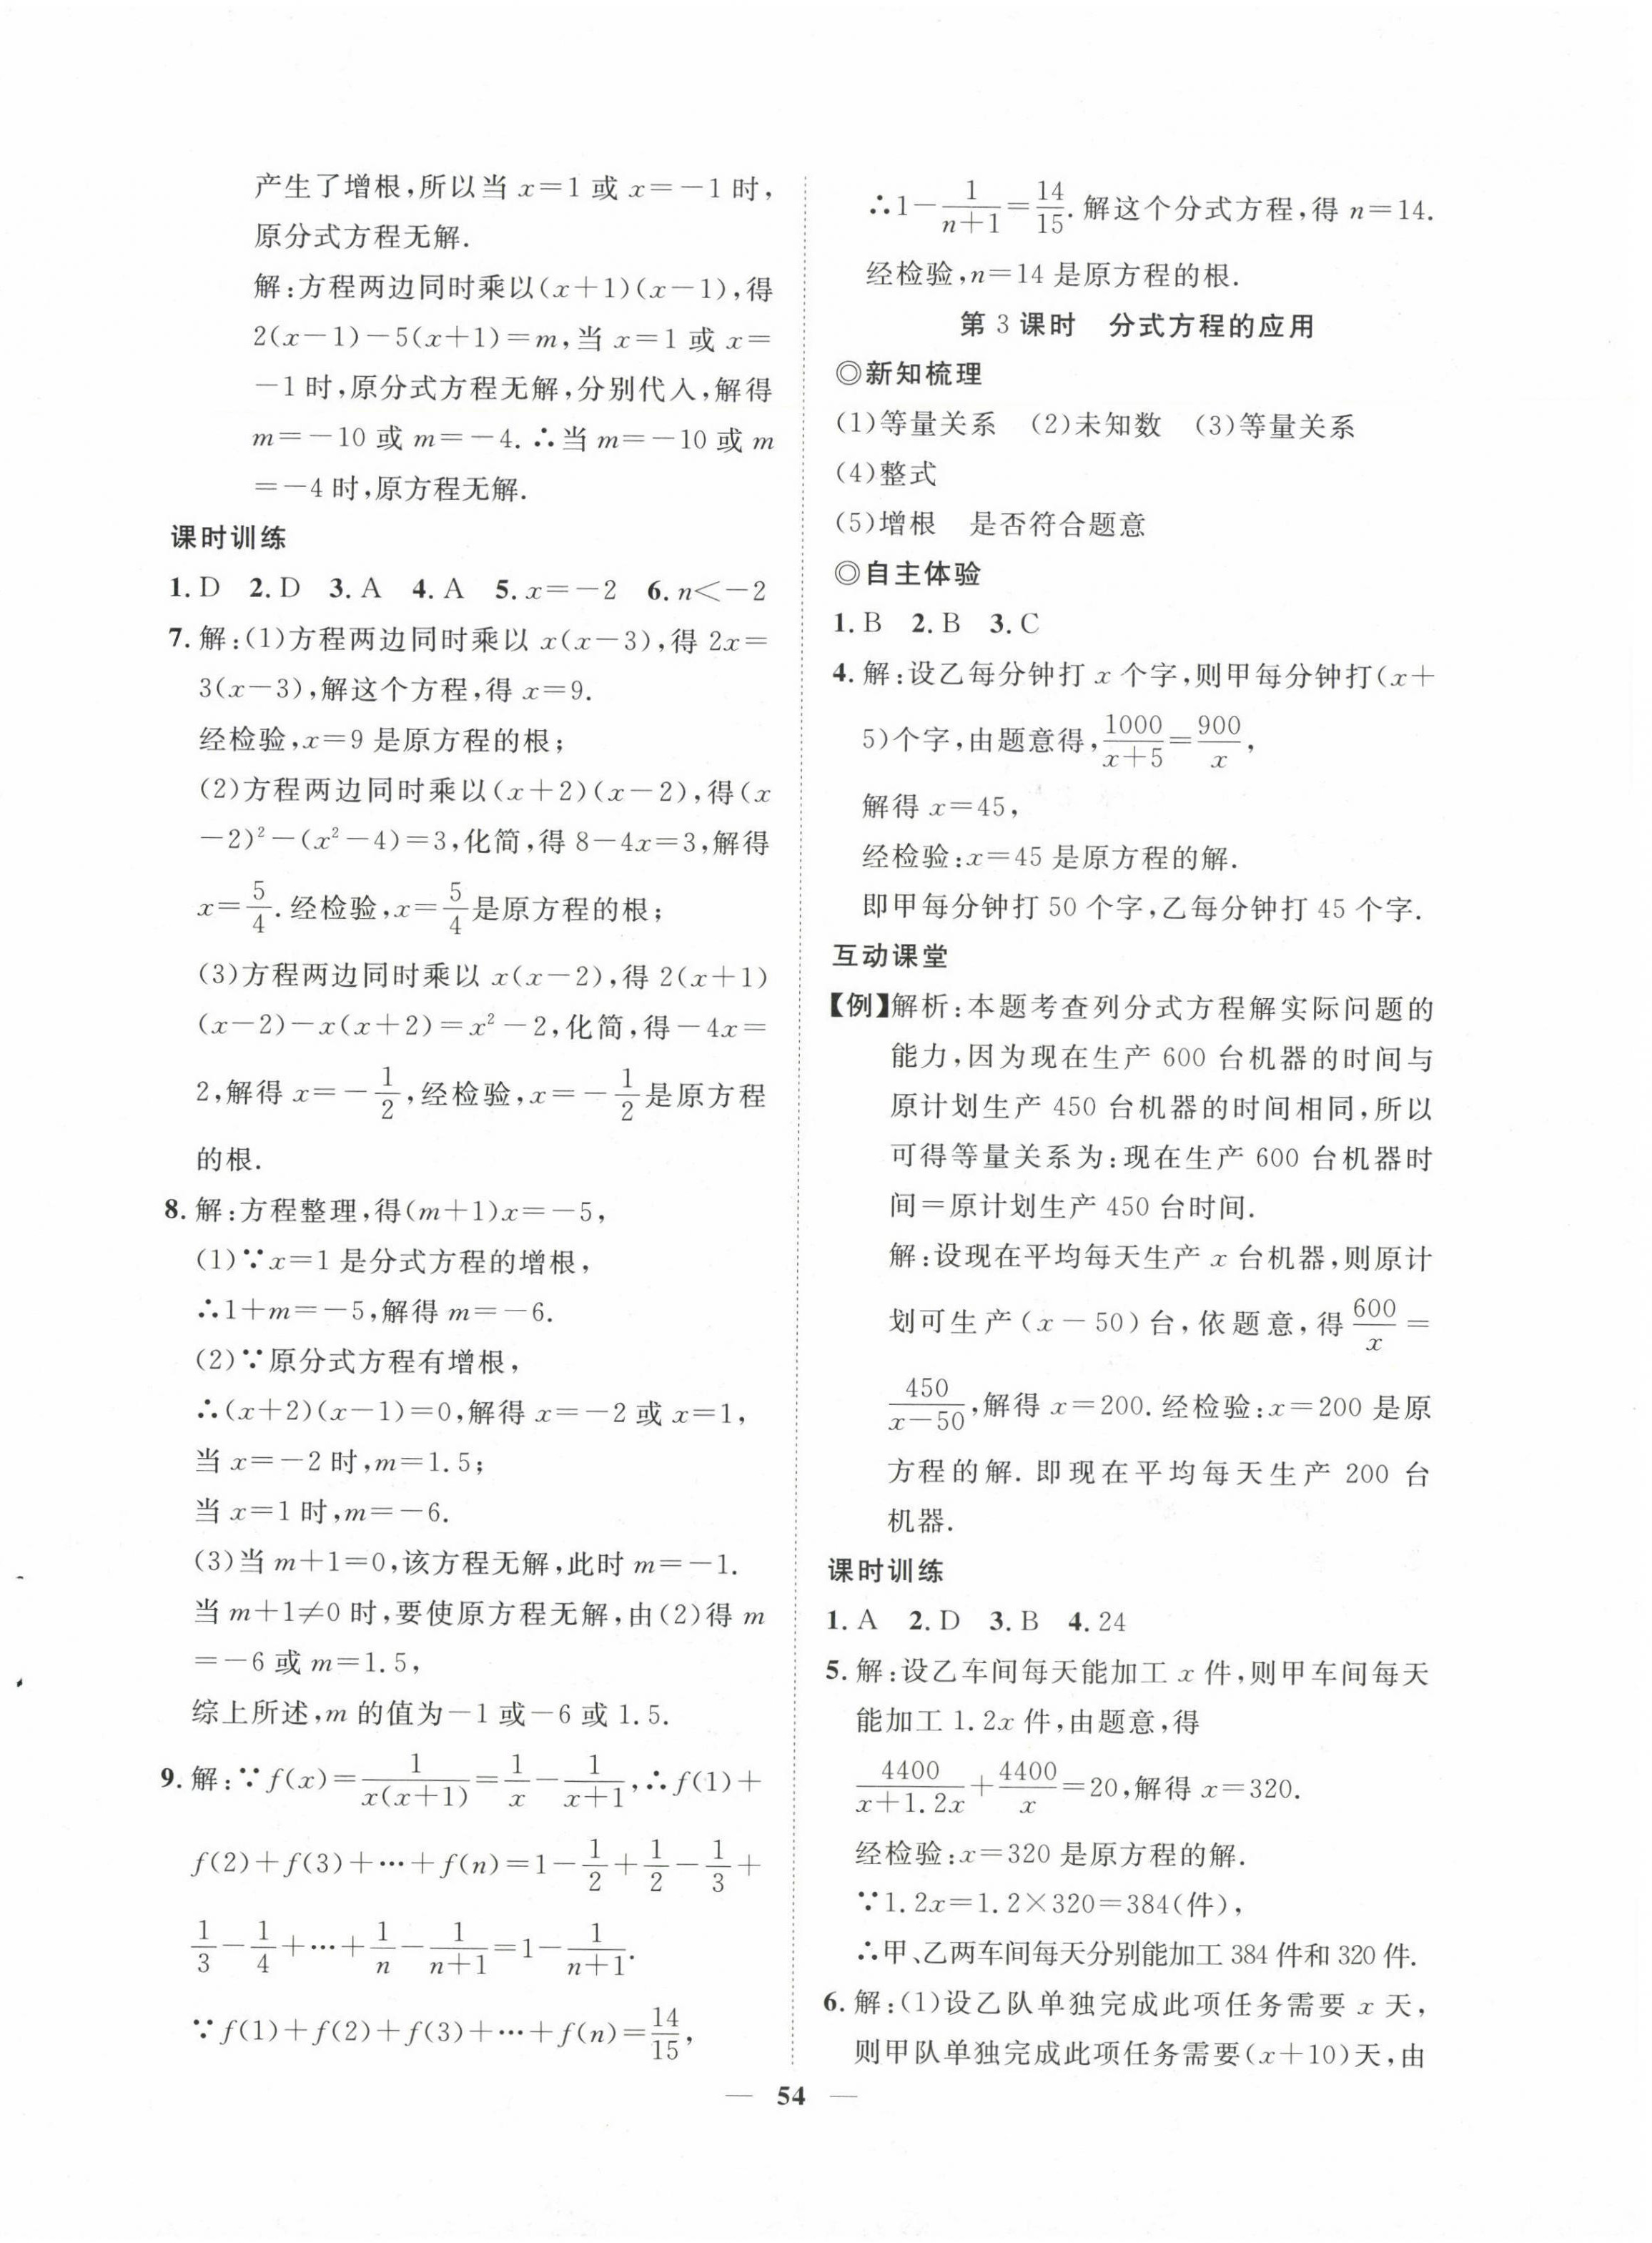 产生了增根,所以当 x=1 或 x=-1 时,
原分式方程无解.
解:方程两边同时乘以(x+1)(x-1),得
2(x-1)-5(x+1)=m,当 x=1 或 x=
-1 时,原分式方程无解,分别代入,解得
m=-10 或 m=-4. ∴当 m=-10 或 m
=-4 时,原方程无解.
课时训练
1. D 2. D 3. A 4. A 5. x=-2 6. n<-2
7. 解:(1)方程两边同时乘以 x(x-3),得 2x=
3(x-3),解这个方程,得 x=9.
经检验,x=9 是原方程的根;
(2)方程两边同时乘以(x+2)(x-2),得(x
-2)²-(x²-4)=3,化简,得 8-4x=3,解得
x=5/4. 经检验,x=5/4是原方程的根;
(3)方程两边同时乘以 x(x-2),得 2(x+1)
(x-2)-x(x+2)=x²-2,化简,得-4x=
2,解得 x=-1/2,经检验,x=-1/2是原方程
的根.
8. 解:方程整理,得(m+1)x=-5,
(1)∵x=1 是分式方程的增根,
∴1+m=-5,解得 m=-6.
(2)∵原分式方程有增根,
∴(x+2)(x-1)=0,解得 x=-2 或 x=1,
当 x=-2 时,m=1.5;
当 x=1 时,m=-6.
(3)当 m+1=0,该方程无解,此时 m=-1.
当 m+1≠0 时,要使原方程无解,由(2)得 m
=-6 或 m=1.5,
综上所述,m 的值为-1 或-6 或 1.5.
9. 解:∵f(x)=1/(x(x+1))=1/x-1/(x+1),∴f(1)+
f(2)+f(3)+…+f(n)=1-1/2+1/2-1/3+
1/3-1/4+…+1/n-1/(n+1)=1-1/(n+1).
∵f(1)+f(2)+f(3)+…+f(n)=14/15,
∴1-1/(n+1)=14/15. 解这个分式方程,得 n=14.
经检验,n=14 是原方程的根.
第 3 课时 分式方程的应用
◎新知梳理
(1)等量关系 (2)未知数 (3)等量关系
(4)整式
(5)增根 是否符合题意
◎自主体验
1. B 2. B 3. C
4. 解:设乙每分钟打 x 个字,则甲每分钟打(x+
5)个字,由题意得,1000/(x+5)=900/x,
解得 x=45,
经检验:x=45 是原方程的解.
即甲每分钟打 50 个字,乙每分钟打 45 个字.
互动课堂
【例】解析:本题考查列分式方程解实际问题的
能力,因为现在生产 600 台机器的时间与
原计划生产 450 台机器的时间相同,所以
可得等量关系为:现在生产 600 台机器时
间=原计划生产 450 台时间.
解:设现在平均每天生产 x 台机器,则原计
划可生产(x-50)台,依题意,得600/x=
450/(x-50),解得 x=200. 经检验:x=200 是原
方程的解. 即现在平均每天生产 200 台
机器.
课时训练
1. A 2. D 3. B 4. 24
5. 解:设乙车间每天能加工 x 件,则甲车间每天
能加工 1.2x 件,由题意,得
4400/(x+1.2x)+4400/x=20,解得 x=320.
经检验:x=320 是原方程的解.
∵1.2x=1.2×320=384(件),
∴甲、乙两车间每天分别能加工 384 件和 320 件.
6. 解:(1)设乙队单独完成此项任务需要 x 天,
则甲队单独完成此项任务需要(x+10)天,由
— 54 —